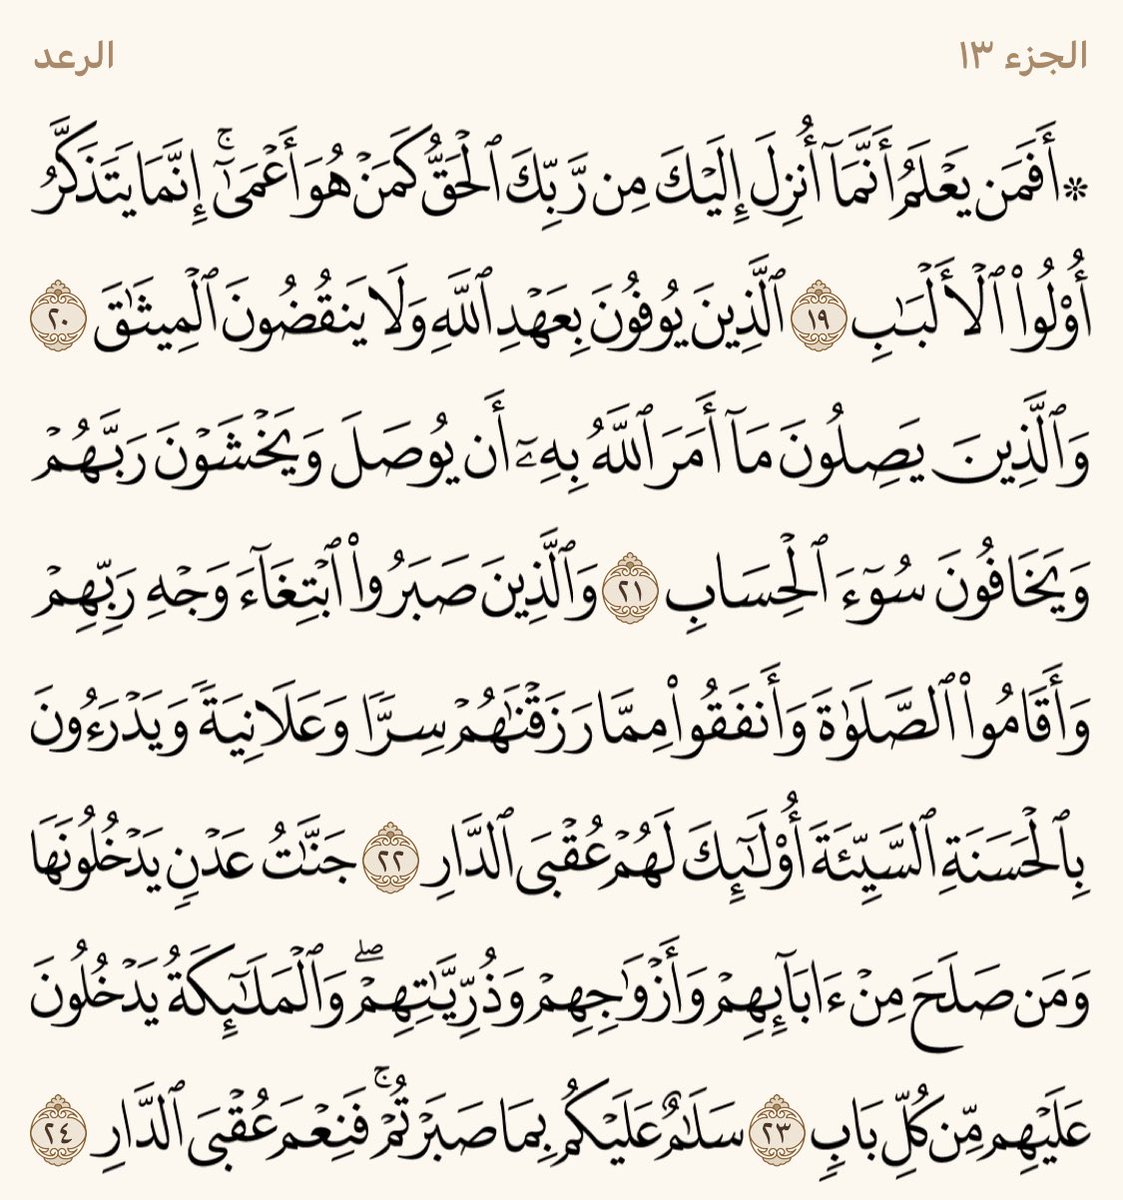 الجزء ١٣ الرعد
۞ أَفَمَن يَعْلَمُ أَنَّمَآ أُنزِلَ إِلَيْكَ مِن رَّبِّكَ ٱلْحَقُّ كَمَنْ هُوَ أَعْمَىٰٓ ۚ إِنَّمَا يَتَذَكَّرُ
أُو۟لُوا۟ ٱلْأَلْبَـٰبِ ١٩ ٱلَّذِينَ يُوفُونَ بِعَهْدِ ٱللَّهِ وَلَا يَنقُضُونَ ٱلْمِيثَـٰقَ ٢٠
وَٱلَّذِينَ يَصِلُونَ مَآ أَمَرَ ٱللَّهُ بِهِۦٓ أَن يُوصَلَ وَيَخْشَوْنَ رَبَّهُمْ
وَيَخَافُونَ سُوٓءَ ٱلْحِسَابِ ٢١ وَٱلَّذِينَ صَبَرُوا۟ ٱبْتِغَآءَ وَجْهِ رَبِّهِمْ
وَأَقَامُوا۟ ٱلصَّلَوٰةَ وَأَنفَقُوا۟ مِمَّا رَزَقْنَـٰهُمْ سِرًّا وَعَلَانِيَةً وَيَدْرَءُونَ
بِٱلْحَسَنَةِ ٱلسَّيِّئَةَ أُو۟لَـٰٓئِكَ لَهُمْ عُقْبَى ٱلدَّارِ ٢٢ جَنَّـٰتُ عَدْنٍ يَدْخُلُونَهَا
وَمَن صَلَحَ مِنْ ءَابَآئِهِمْ وَأَزْوَٰجِهِمْ وَذُرِّيَّـٰتِهِمْ ۖ وَٱلْمَلَـٰٓئِكَةُ يَدْخُلُونَ
عَلَيْهِم مِّن كُلِّ بَابٍ ٢٣ سَلَـٰمٌ عَلَيْكُم بِمَا صَبَرْتُمْ ۚ فَنِعْمَ عُقْبَى ٱلدَّارِ ٢٤